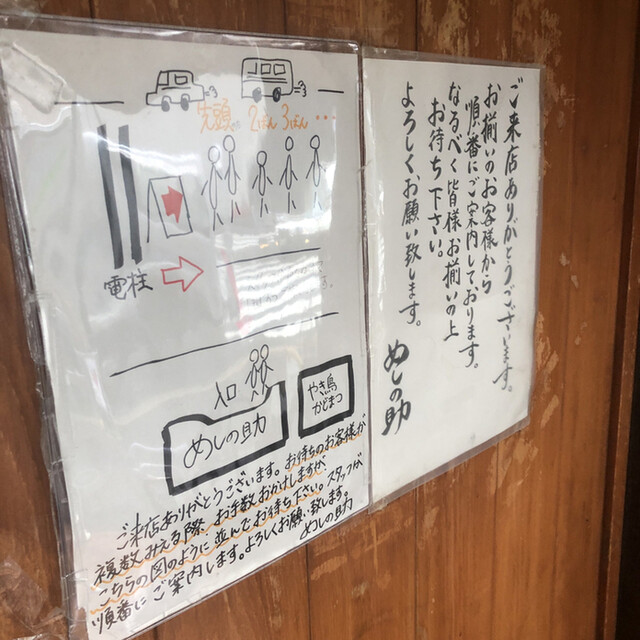 先頭 2ばん 3ばん …
電柱
入口
めしの助
やき鳥
かどまつ
ご来店ありがとうございます。お待ちのお客様が
複数みえる際、お手数おかけしますが、
こちらの図のように並んでお待ち下さい。スタッフが
順番にご案内します。よろしくお願い致します。
めしの助
ご来店ありがとうございます。
お揃いのお客様から
順番にご案内しております。
なるべく皆様お揃いの上
お待ち下さい。
よろしくお願い致します。
めしの助